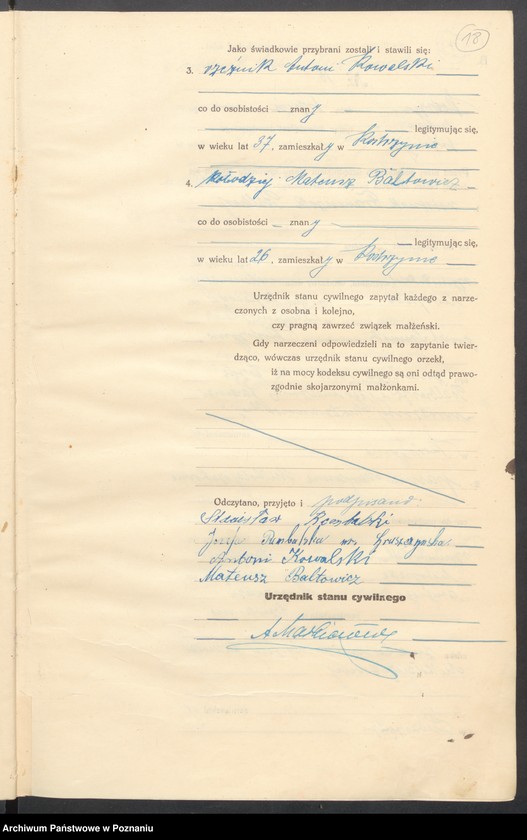 18
Jako świadkowie przybrani zostali i stawili się:
3. rzeźnik Antoni Kowalski
co do osobistości znany
legitymując się,
w wieku lat 37, zamieszkały w Kostrzynie
4. Kołodziej Mateusz Baltowicz
co do osobistości znany
legitymując się,
w wieku lat 26, zamieszkały w Kostrzynie
Urzędnik stanu cywilnego zapytał każdego z narze-
czonych z osobna i kolejno,
czy pragną zawrzeć związek małżeński.
Gdy narzeczeni odpowiedzieli na to zapytanie twier-
dząco, wówczas urzędnik stanu cywilnego orzekł,
iż na mocy kodeksu cywilnego są oni odtąd prawo-
zgodnie skojarzonymi małżonkami.
Odczytano, przyjęto i podpisano
Stanisław
Antoni Kowalski
Mateusz Baltowicz
Urzędnik stanu cywilnego
Archiwum Państwowe w Poznaniu